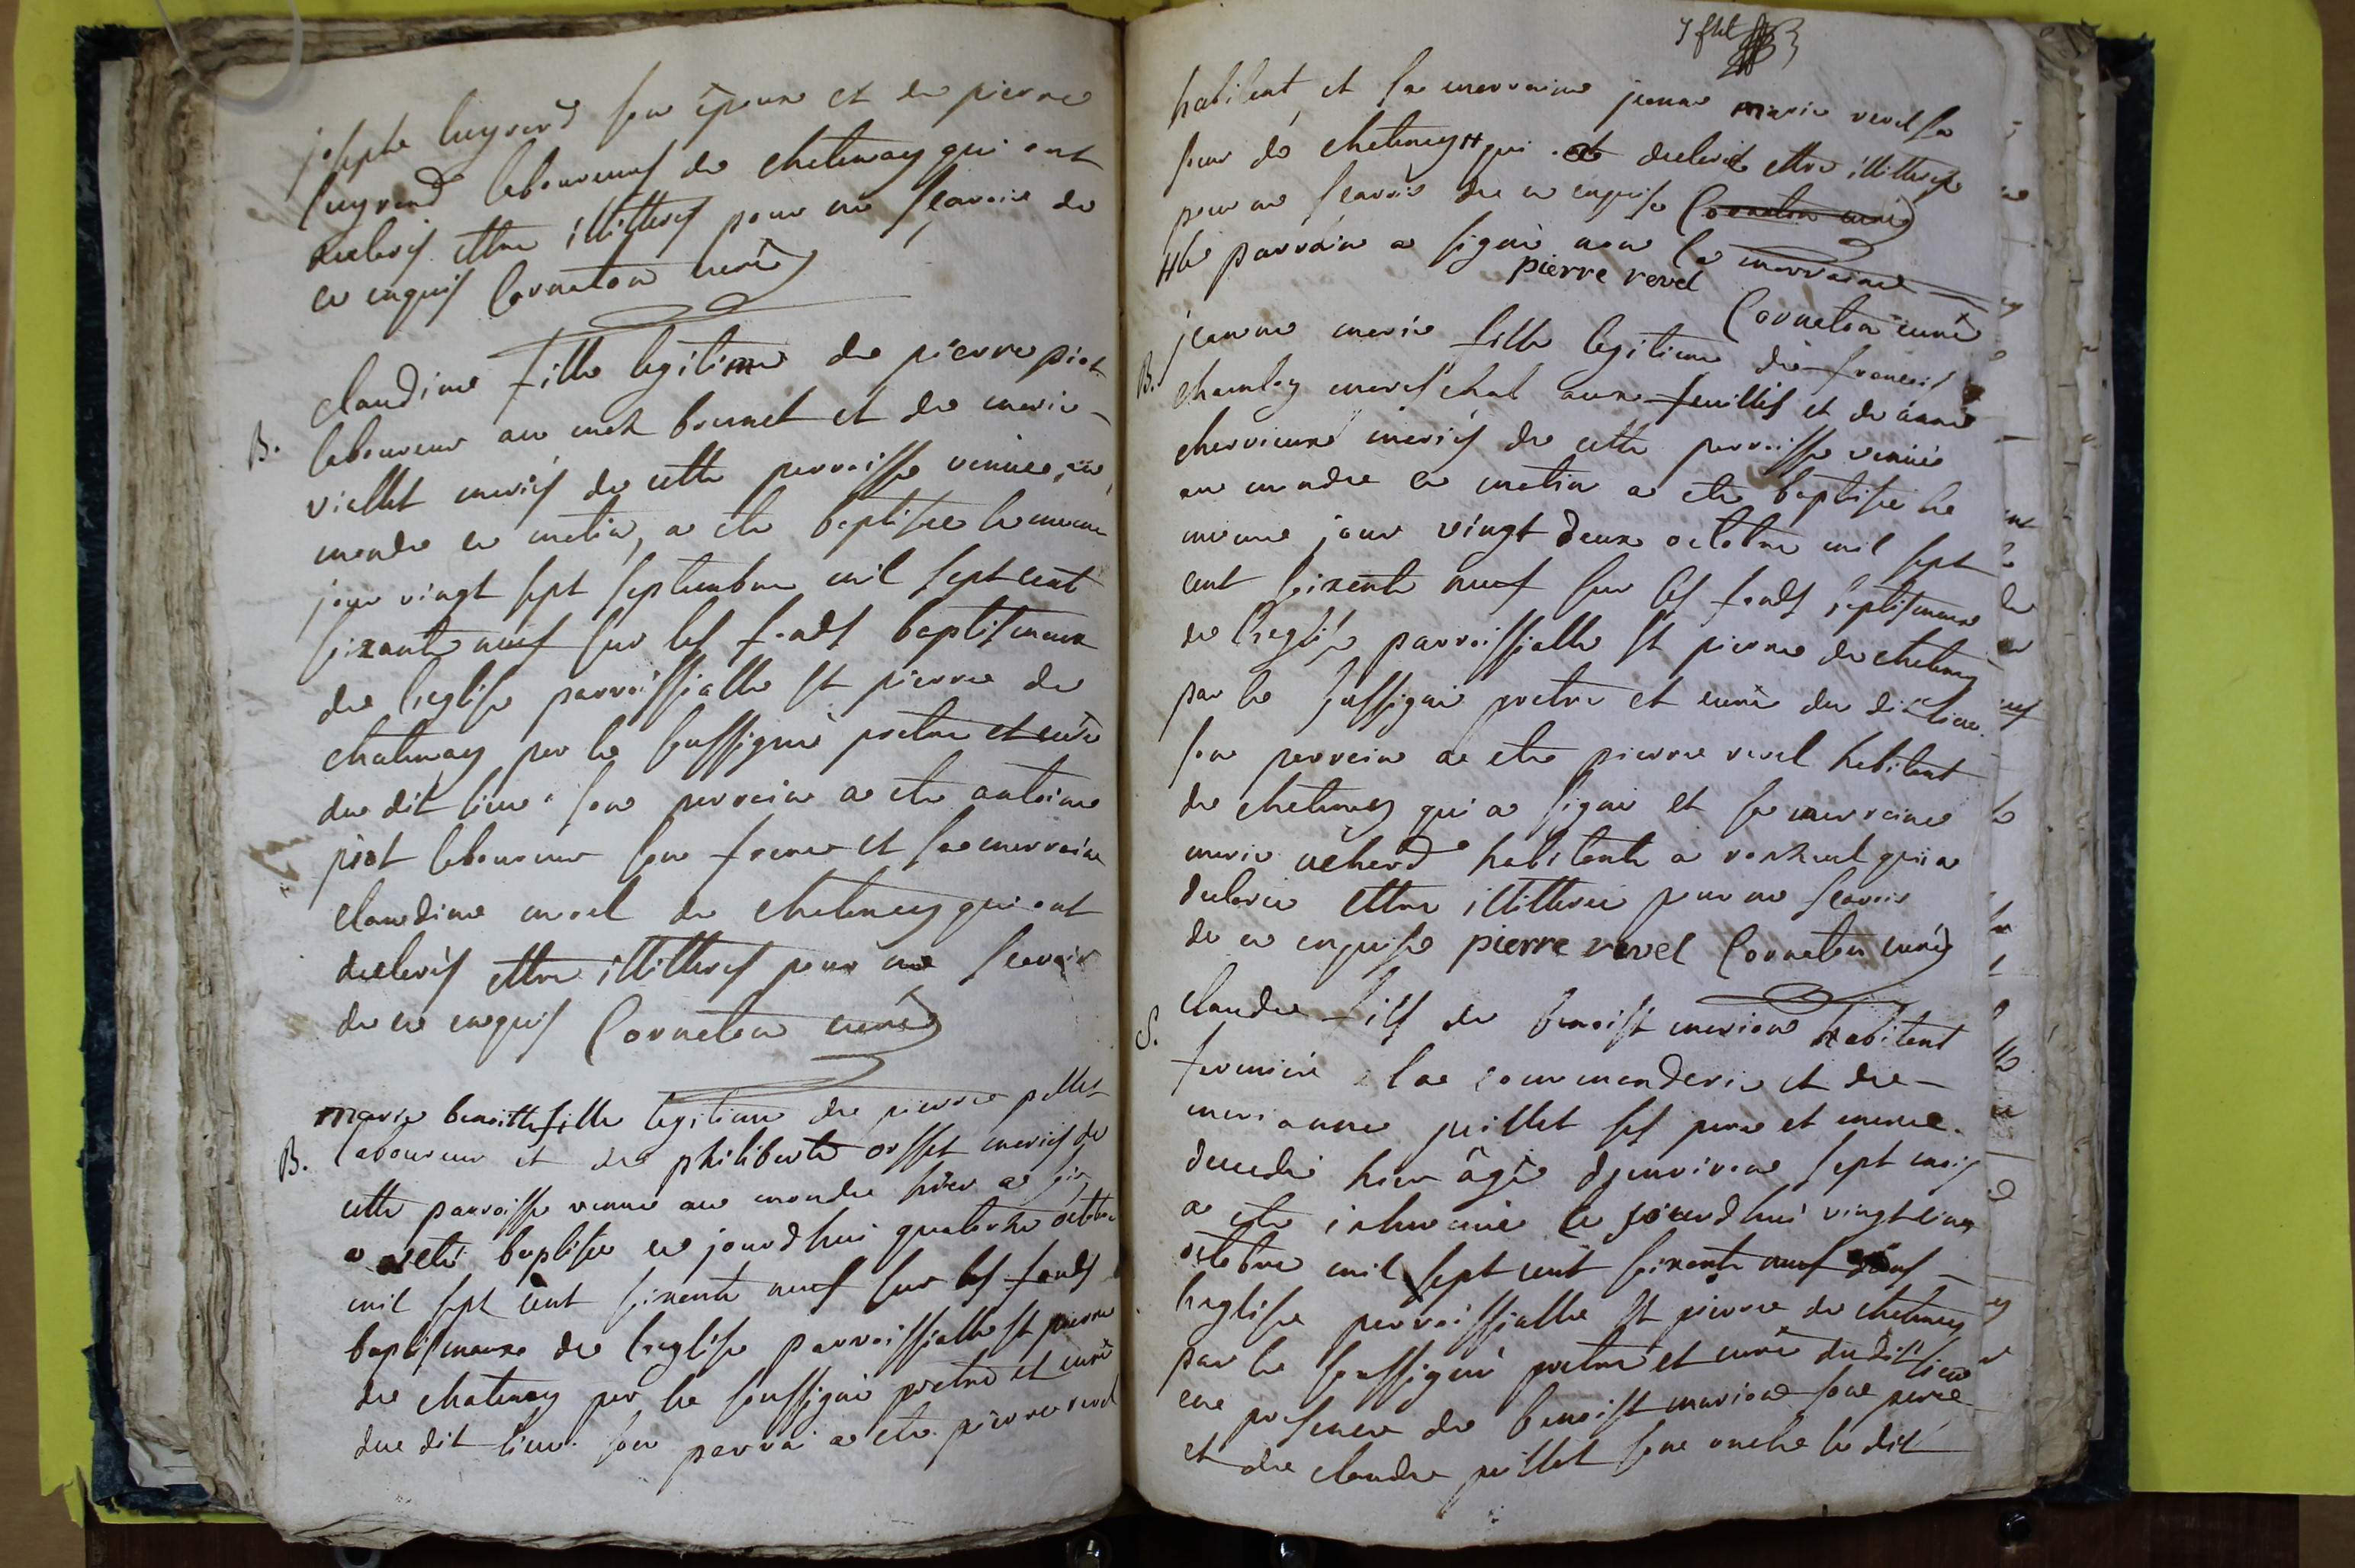 josephe luyrand son épouse et de pierre
luyrand laboureurs de chatenay qui ont
declarés ettre illitterés pour ne sçavoir de
ce enquis Corneton curé
claudine fille legitime de pierre piot
B. laboureur au mas brunet et de marie
viallet mariés de cette parroisse venue au
monde ce matin, a ete baptisee le meme
jour vingt sept septembre mil sept cent
soixante neuf sur les fonds baptismaux
de l'eglise parroissialle st pierre de
chatenay par le soussigné pretre et curé
du dit lieu son parrain a ete antoine
piot laboureur son frere et sa marraine
claudine morel de chatenay qui ont
declarés ettre illitterés pour ne scavoir
de ce enquis Corneton curé
marie benoitte fille legitime de pierre pellet
B. laboureur et de philiberte orsset mariés de
cette parroisse venue au monde hier a
a eté baptisée ce jourd'hui quatorze octobre
mil sept cent soixante neuf sur les fonds
baptismaux de l'eglise parroissialle st pierre
de chatenay par le soussigné pretre et curé
du dit lieu. son parrai a ete pierre revel
habitant et sa marraine jeanne marie revel sa
soeur de chatenay # qui a declaré ettre illitterée
pour ne scavoir de ce enquise Corneton curé
# le parrain a signé non la marraine
pierre revel
Corneton curé
B. jeanne marie fille legitime de francois
chamley mareschal aux feuilles et de anne
chervieux mariés de cette parroisse venuë
au monde ce matin a ete baptisée le
meme jour vingt deux octobre mil sept
cent soixante neuf sur les fonds baptismaux
de l'eglise parroissialle st pierre de chatenay
par le soussigné pretre et curé du dit lieu.
son parrain a ete pierre revel habitant
de chatenay qui a signé et sa marraine
marie habitante a qui a
declaree ettre illitterée pour ne scavoir
de ce enquise pierre revel Corneton curé
S. claude fils de benoist marion habitant
fermier la commanderie et de
marianne juillet ses pere et mere.
decedé hier âgé d'environ sept mois
a ete inhumé ce jourd'hui vingt cinq
octobre mil sept cent soixante neuf dans
l'eglise parroissialle st pierre de chatenay
par le soussigné pretre et curé du dit lieu
en presence de benoist marion son pere
et de claude juillet son oncle le dit